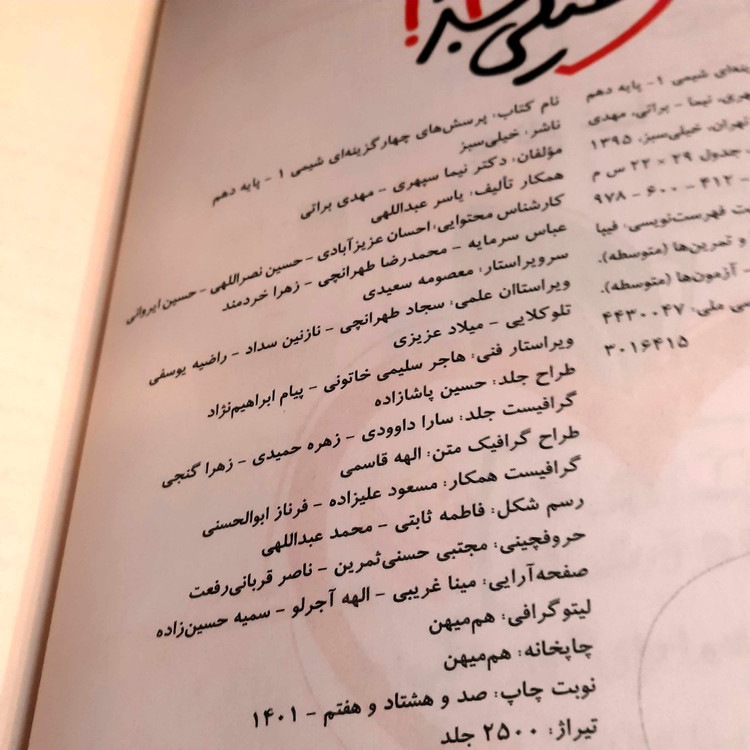 خیلی سبز!
نام کتاب: پرسش‌های چهارگزینه‌ای شیمی ۱ - پایه دهم
ناشر: خیلی‌سبز
مؤلفان: دکتر نیما سپهری - مهدی براتی
همکار تألیف: یاسر عبداللهی
کارشناس محتوایی: احسان عزیزآبادی - حسین نصراللهی - حسین ایروانی
عباس سرمایه - محمدرضا طهرانچی - زهرا خردمند
سرویراستار: معصومه سعیدی
ویراستاان علمی: سجاد طهرانچی - نازنین سداد - راضیه یوسفی
تلوکلایی - میلاد عزیزی
ویراستار فنی: هاجر سلیمی خاتونی - پیام ابراهیم‌نژاد
طراح جلد: حسین پاشازاده
گرافیست جلد: سارا داوودی - زهره حمیدی - زهرا گنجی
طراح گرافیک متن: الهه قاسمی
گرافیست همکار: مسعود علیزاده - فرناز ابوالحسنی
رسم شکل: فاطمه ثابتی - محمد عبداللهی
حروفچینی: مجتبی حسنی‌ثمرین - ناصر قربانی‌رفعت
صفحه‌آرایی: مینا غریبی - الهه آجرلو - سمیه حسین‌زاده
لیتوگرافی: هم‌میهن
چاپخانه: هم‌میهن
نوبت چاپ: صد و هشتاد و هفتم - ۱۴۰۱
تیراژ: ۲۵۰۰ جلد
شیمی ۱ - پایه دهم
نیما - براتی، مهدی
تهران، خیلی‌سبز، ۱۳۹۵
جدول ۲۹ × ۲۲ س م
۹۷۸ - ۶۰۰ - ۴۱۲ -
فهرست‌نویسی: فیپا
و تمرین‌ها (متوسطه).
آزمون‌ها (متوسطه).
ملی: ۴۴۳۰۰۴۷
۳۰۱۶۴۱۵